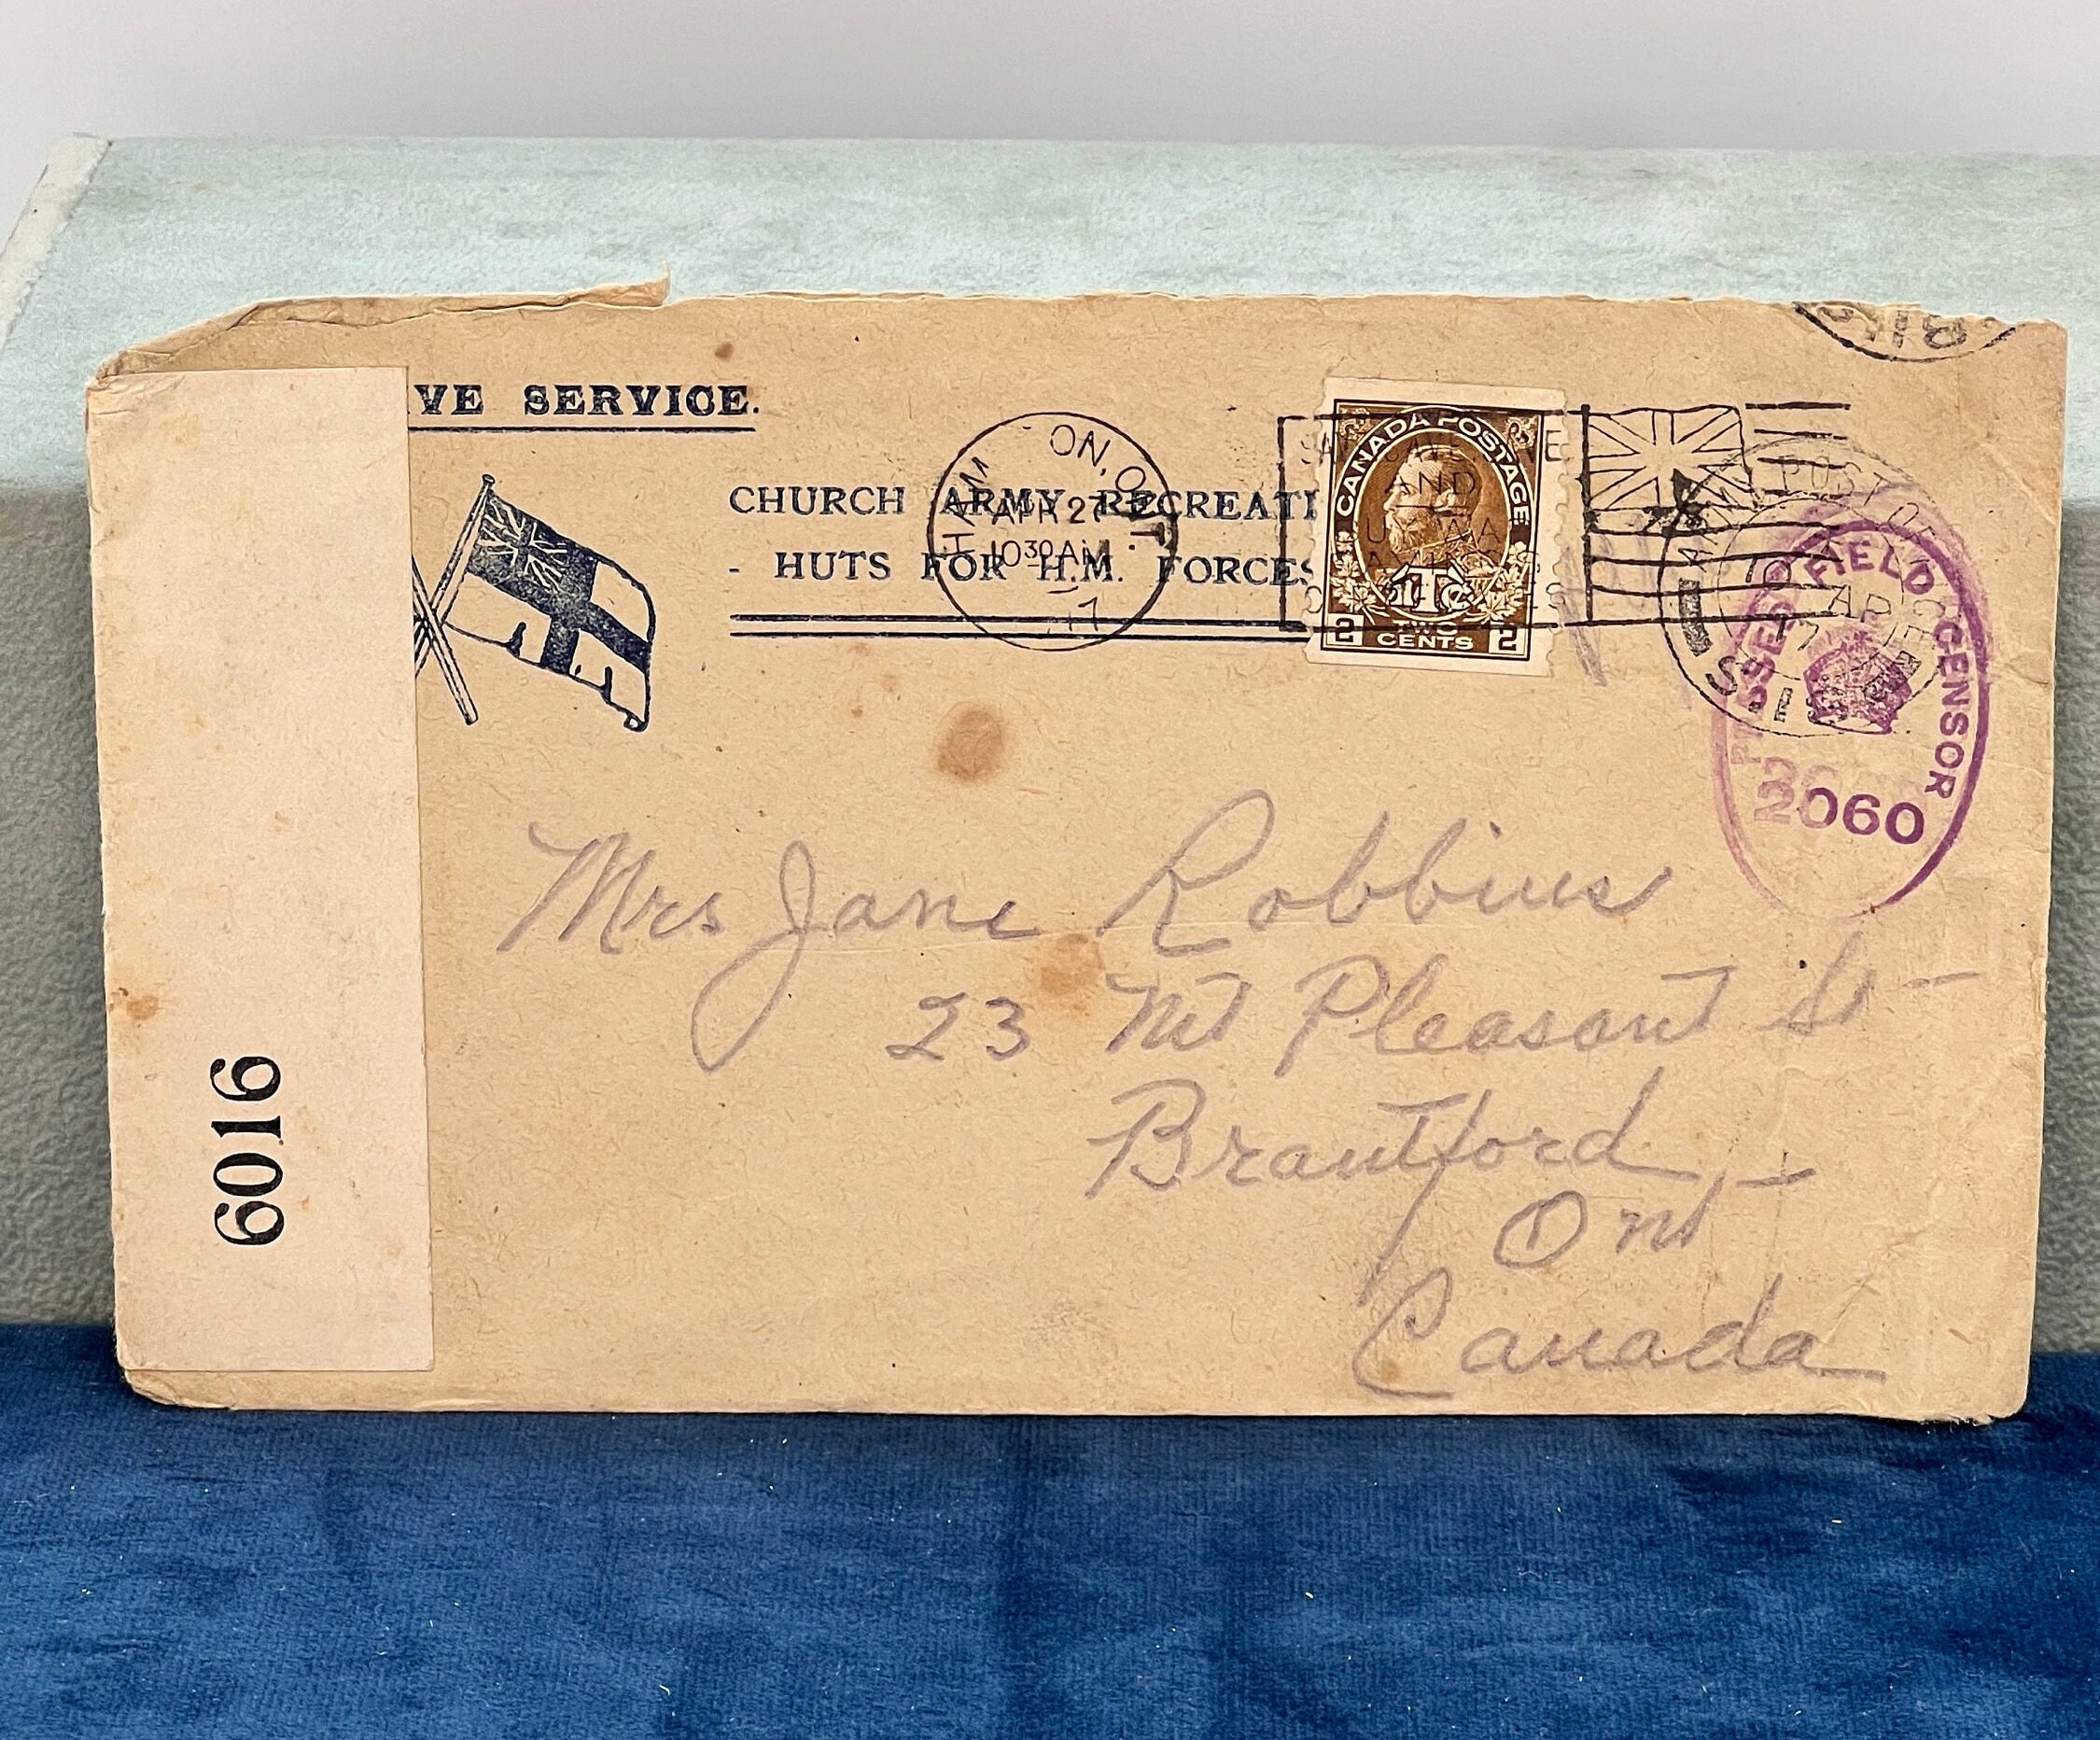 VE SERVICE.
CHURCH ARMY RECREATI
- HUTS FOR H.M. FORCES
HAMILTON, ONT.
APR 27
10 30 AM
17
AND
CANADA POSTAGE
1Tc
2 TWO CENTS 2
ARMY POST OFFICE
AP
17
PASSED FIELD CENSOR
2060
Mrs Jane Robbins
23 Mt Pleasant St -
Brantford -
Ont
Canada
6016